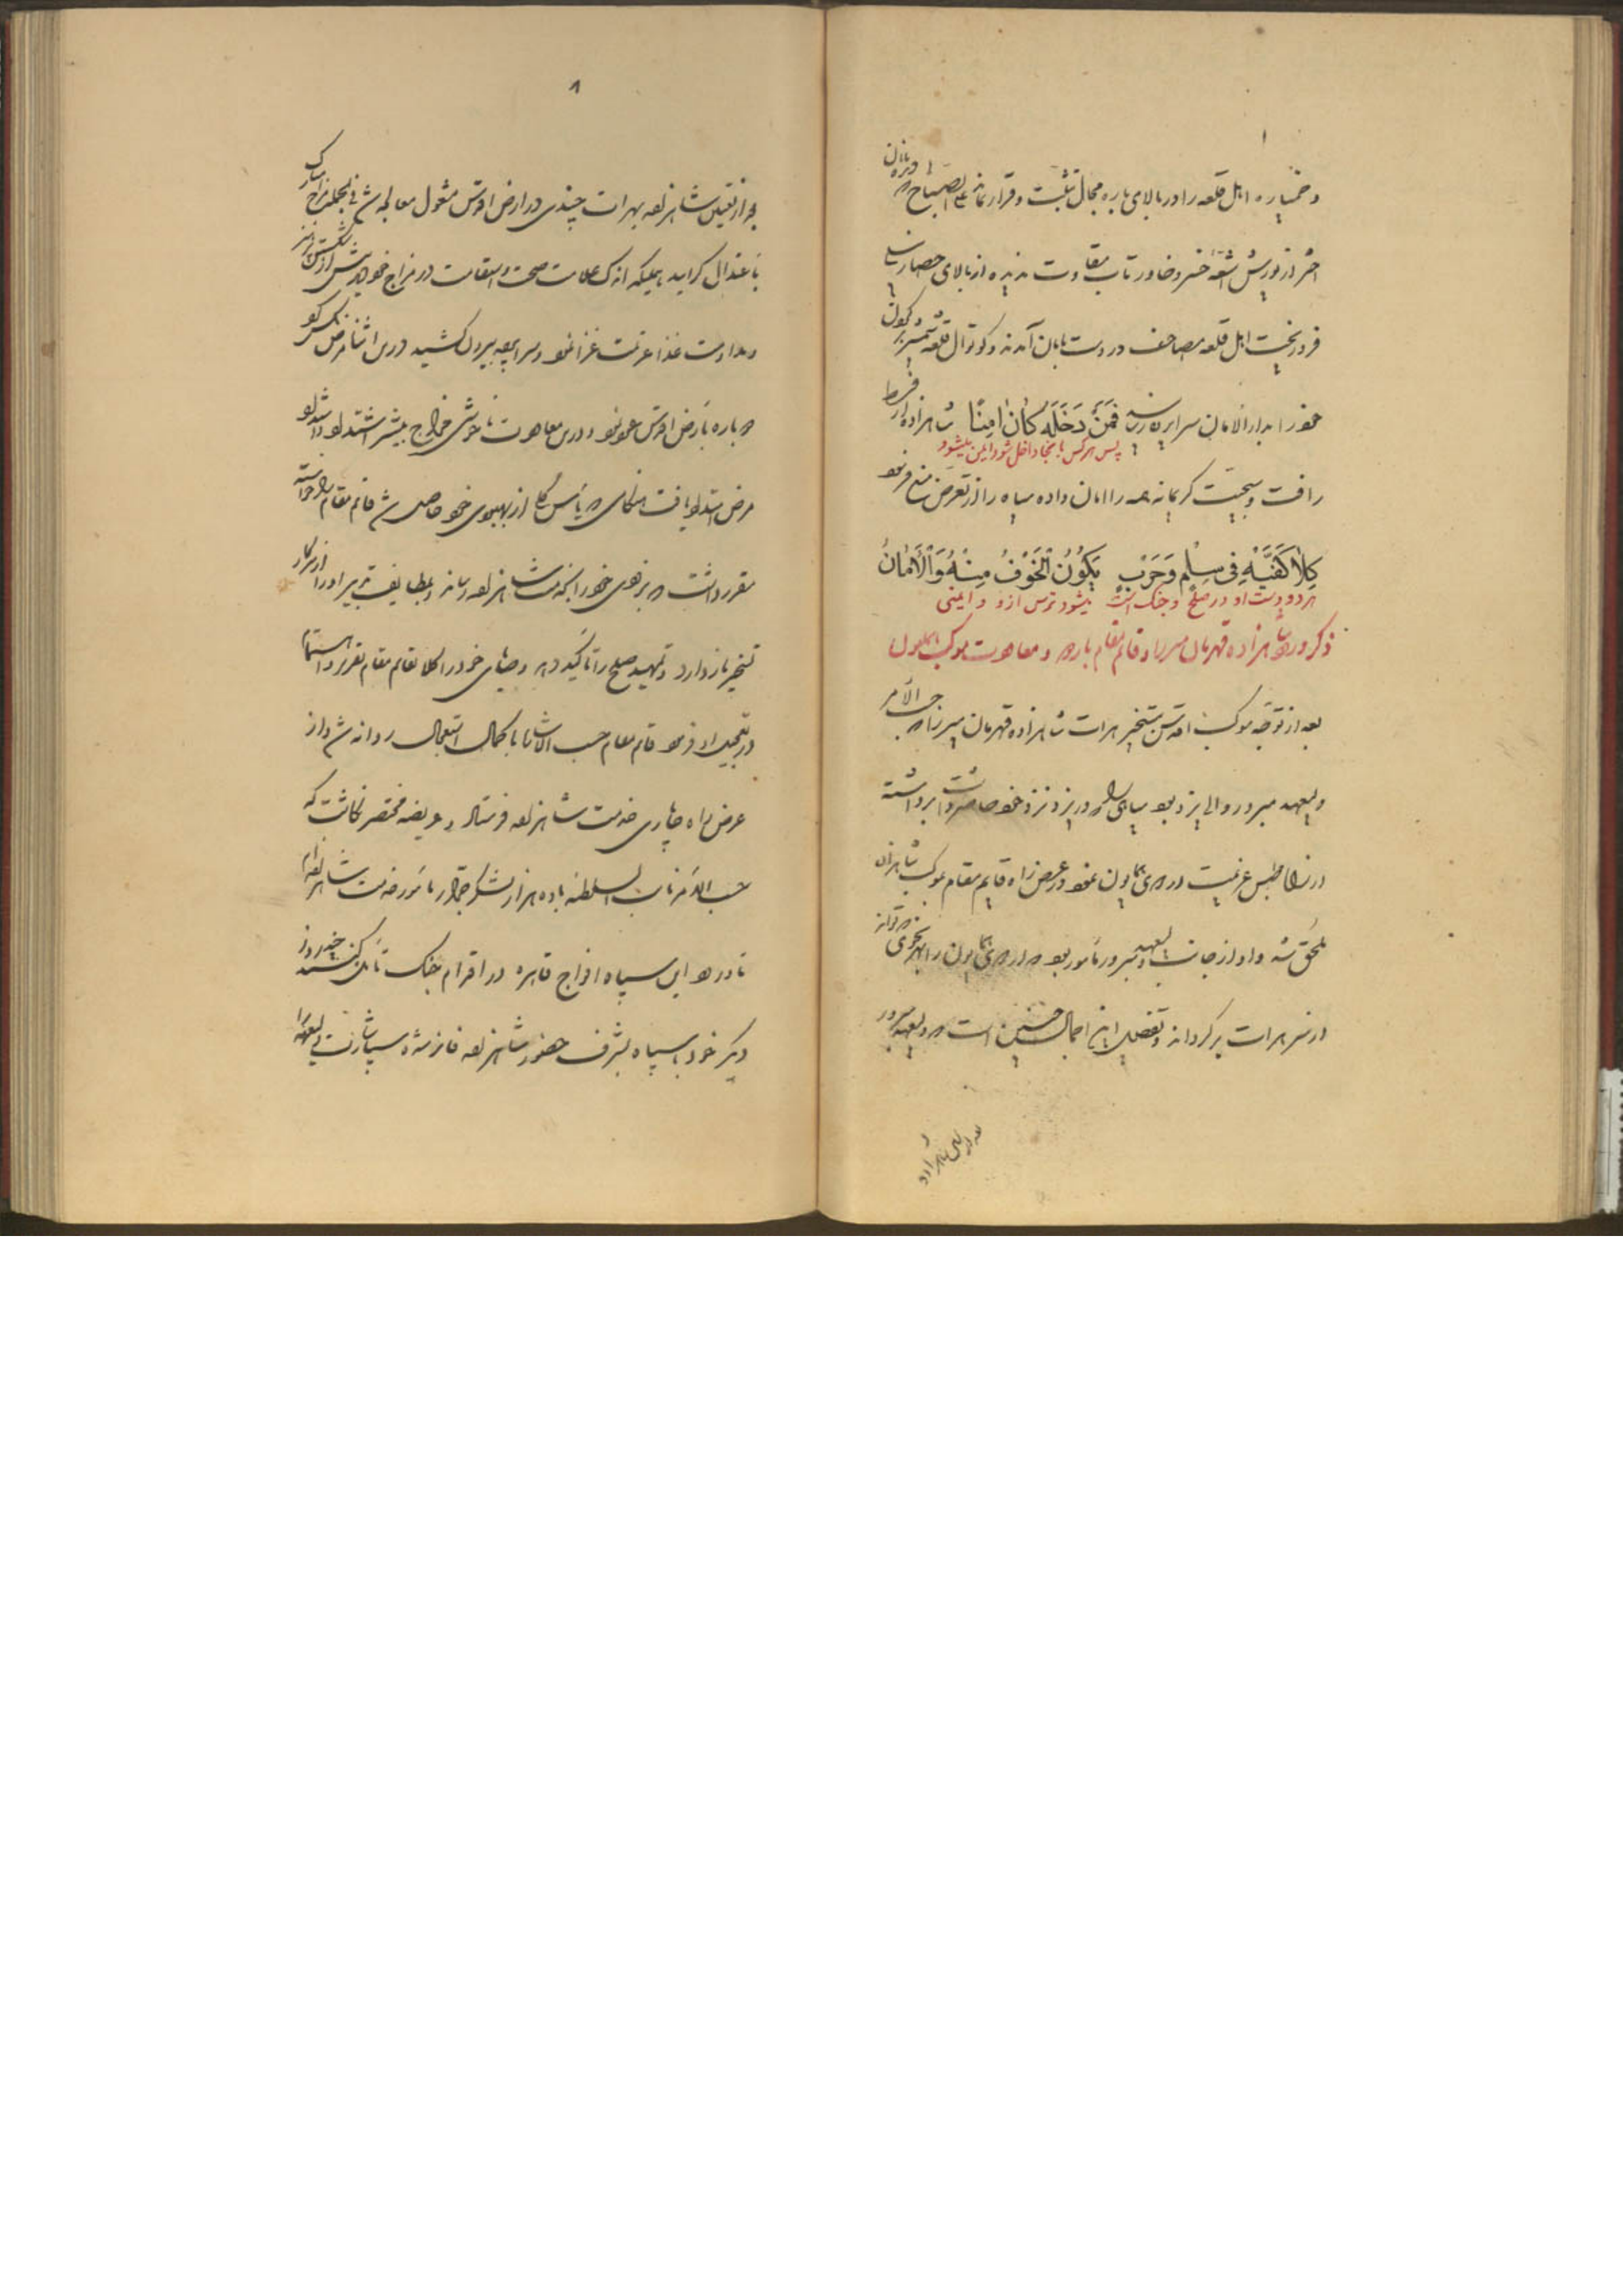 و خمپاره اهل قلعه را در بالای باره مجال تثبت و قرار نماند علی الصباح که
اختر از یورش اشعه خسرو خاور تاب مقاومت ندیده از بالای حصار
فرو ریخت اهل قلعه مصاحف در دست بامان آمدند و کوتوال قلعه شمشیر بر گردن
خود را بدار الامان سرا پرده رسانید فَمَنْ دَخَلَهُ كَانَ اٰمِنًا شاهزاده از فرط
پس هر کس بآنجا داخل شود ایمن میشود
رافت و سجیت کریمانه همه را امان داده سپاه را از تعرض منع فرمود
كِلَا كَفَّيْهِ فِي سِلْمٍ وَحَرْبٍ يَكُونُ الْخَوْفُ مِنْهُ وَالْأَمَانُ
هر دو دست او در صلح و جنگ است میشود ترس ازو و ایمنی
ذکر ورود شاهزاده قهرمان میرزا و قائم مقام و معاودت موکب همایون
بعد از توجه موکب اقدس بتسخیر هرات شاهزاده قهرمان میرزا که حسب الامر
ولیعهد مبرور والی یزد بود سپاهی که در یزد نزد خود حاضر داشت برداشته
از راه طبس عزیمت اردوی همایون نمود در عرض راه قایم مقام بموکب شاهزاده
ملحق شد و او از جانب ولیعهد مبرور مامور بود که اردوی همایون را بهر نحوی که تواند
از سر هرات برگرداند و تفصیل این اجمال چنین است که ولیعهد مبرور
بعد از تعیین شاهزاده بهرات چندی در ارض اقدس مشغول معالجه شد فی الجمله مزاج مبارک
باعتدال گرایید همینکه اندک علامت صحت و استقامت در مزاج خود دید
و مداومت غذا عزیمت غزا نمود و سراپرده بیرون کشید درین اثنا مرض نکس کرد
دوباره بارض اقدس عود نمود و درین معاودت ناخوشی مزاج بیشتر اشتداد
مرض امتداد یافت هنگامی که یاس کلی از بهبودی خود حاصل شد قائم مقام را خواسته
مقرر داشت که بزودی خود را بخدمت شاهزاده رساند و بلطایف تدبیر او را از سر کار
تسخیر باز دارد و تمهید صلح را تاکید کرده وصایای خود را کلا بقائم مقام تقریر داشت
در تعجیل او فرمود قائم مقام حسب الاشاره با کمال استعجال روانه شد و از
عرض راه چاپاری خدمت شاهزاده فرستاد و عریضه مختصر نگاشت که
حسب الامر نایب السلطنه با ده هزار لشکر جرار مامور خدمت شاهزاده ام
تا ورود این سپاه افواج قاهره در اقدام جنگ تامل کنند چند روز
دیگر خود با سپاه بشرف حضور شاهزاده فائز شده